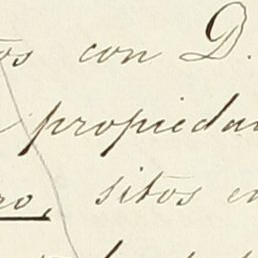 os con D.
propieda
ro, sitos e